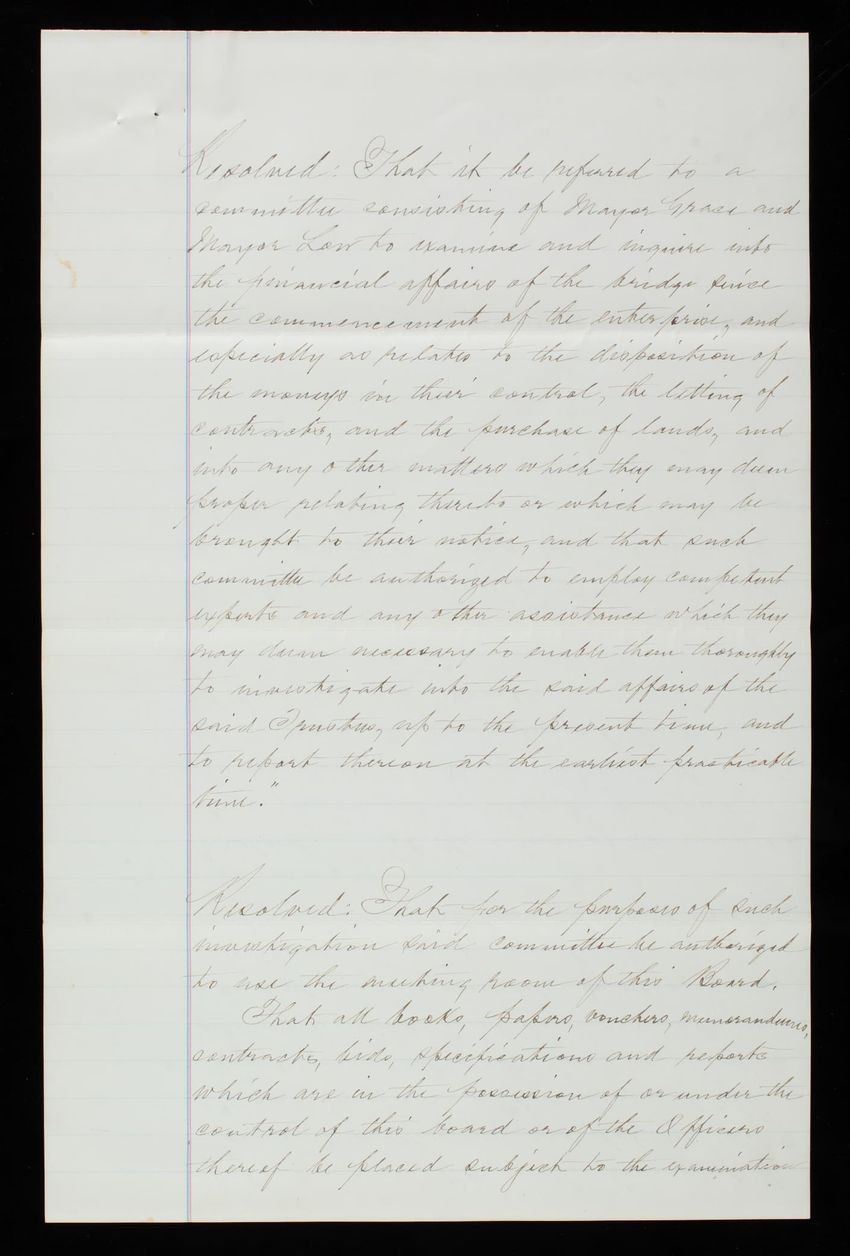 Resolved: That it be referred to a
committee consisting of Mayor Grace and
Mayor Low to examine and inquire into
the financial affairs of the bridge since
the commencement of the enterprise, and
especially as relates to the disposition of
the moneys in their control, the letting of
contracts, and the purchase of lands, and
into any other matters which they may deem
proper relating thereto or which may be
brought to their notice, and that such
committee be authorized to employ competent
experts and any other assistance which they
may deem necessary to enable them thoroughly
to investigate into the said affairs of the
said Trustees, up to the present time, and
to report thereon at the earliest practicable
time."
Resolved: That for the purposes of such
investigation said committee be authorized
to use the meeting room of this Board.
That all books, papers, vouchers, memorandums,
contracts, bids, specifications and reports
which are in the possession of or under the
control of this board or of the Officers
thereof be placed subject to the examination